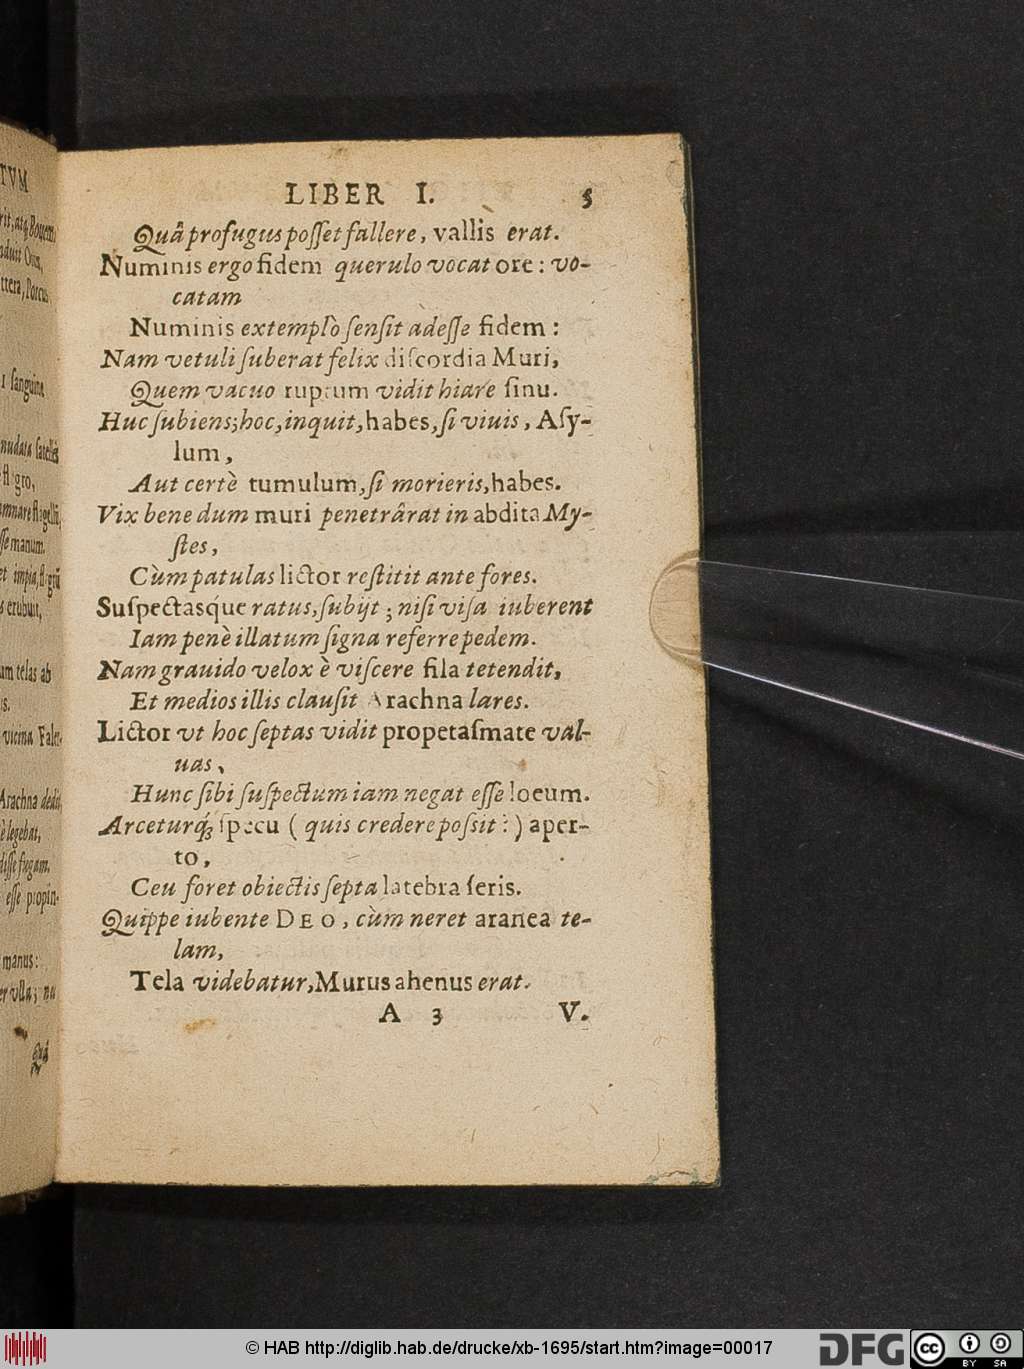 LIBER I. 5
Quâ profugus posset fallere, vallis erat.
Numinis ergo fidem querulo vocat ore: vo-
catam
Numinis extemplò sensit adesse fidem:
Nam vetuli suberat felix discordia Muri,
Quem vacuo ruptum vidit hiare sinu.
Huc subiens; hoc, inquit, habes, si viuis, Asy-
lum,
Aut certè tumulum, si morieris, habes.
Vix bene dum muri penetrârat in abdita My-
stes,
Cùm patulas lictor restitit ante fores.
Suspectasq́ue ratus, subijt; nisi visa iuberent
Iam penè illatum signa referre pedem.
Nam grauido velox è viscere fila tetendit,
Et medios illis clausit Arachna lares.
Lictor vt hoc septas vidit propetasmate val-
uas,
Hunc sibi suspectum iam negat esse loeum.
Arceturq́; specu (quis credere possit?) aper-
to,
Ceu foret obiectis septa latebra seris.
Quippe iubente DEO, cùm neret aranea te-
lam,
Tela videbatur, Murus ahenus erat.
A 3 V.
TVM
sanguine
nudata
gro,
manum.
impia,
erubuit,
um telas ab
vicina Faler-
Arachna dedit,
legebat,
fugam.
esse propin-
manus:
vlla; na
Quâ
© HAB http://diglib.hab.de/drucke/xb-1695/start.htm?image=00017
DFG
cc
BY SA